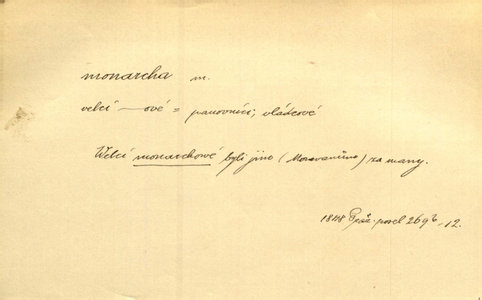 monarcha m.
velcí —ové = panovníci, vládcové
Welcí monarchowé byli jim (Moravanům) za many.
1848 Praž. posel 269 -12.